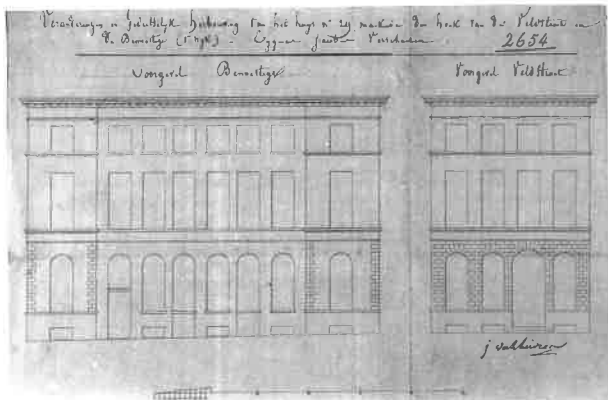 Veranderingen en gedeeltelijk herbouwing van het huys n° 29 den hoek van de Veldstraat en
de Bennesteeg (5 wyk) - Eygenaer Verschueren
2654
Voorgevel Bennesteeg
Voorgevel Veldstraat